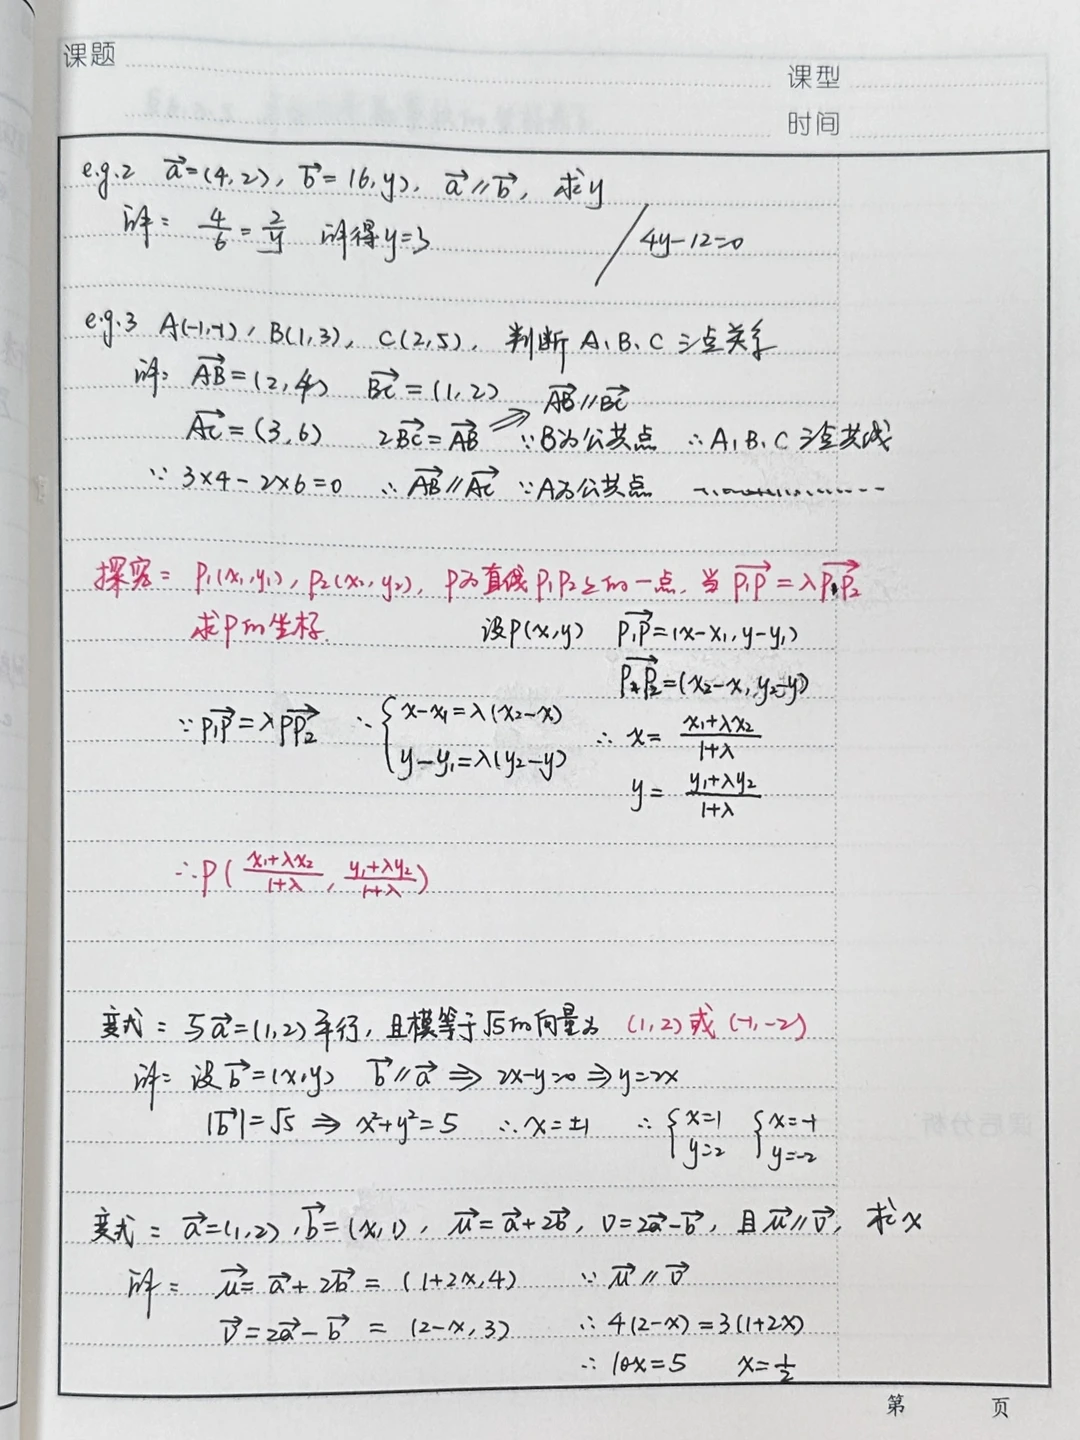 课题
课型
时间
e.g.2 a⃗=(4,2), b⃗=(6,y), a⃗∥b⃗, 求y
解: 4/6=2/y 解得y=3 / 4y-12=0
e.g.3 A(-1,-1), B(1,3), C(2,5), 判断A、B、C三点关系
解: AB⃗=(2,4) BC⃗=(1,2) AB⃗∥BC⃗
AC⃗=(3,6) 2BC⃗=AB⃗ ⇒ ∵B为公共点 ∴A、B、C三点共线
∵3×4-2×6=0 ∴AB⃗∥AC⃗ ∵A为公共点 ……………
探究: P₁(x₁,y₁), P₂(x₂,y₂), P为直线P₁P₂上的一点, 当P₁P⃗=λPP₂⃗
求P的坐标. 设P(x,y) P₁P⃗=(x-x₁,y-y₁)
PP₂⃗=(x₂-x,y₂-y)
∵P₁P⃗=λPP₂⃗ ∴{x-x₁=λ(x₂-x) ∴x=(x₁+λx₂)/(1+λ)
y-y₁=λ(y₂-y) y=(y₁+λy₂)/(1+λ)
∴P((x₁+λx₂)/(1+λ),(y₁+λy₂)/(1+λ))
变式: 与a⃗=(1,2)平行, 且模等于√5的向量为 (1,2)或(-1,-2)
解: 设b⃗=(x,y) b⃗∥a⃗⇒2x-y=0⇒y=2x
|b⃗|=√5⇒x²+y²=5 ∴x=±1 ∴{x=1 {x=-1
y=2 y=-2
变式: a⃗=(1,2), b⃗=(x,1), u⃗=a⃗+2b⃗, v=2a⃗-b⃗, 且u⃗∥v⃗, 求x
解: u⃗=a⃗+2b⃗=(1+2x,4) ∵u⃗∥v⃗
v⃗=2a⃗-b⃗=(2-x,3) ∴4(2-x)=3(1+2x)
∴10x=5 x=1/2
第 页